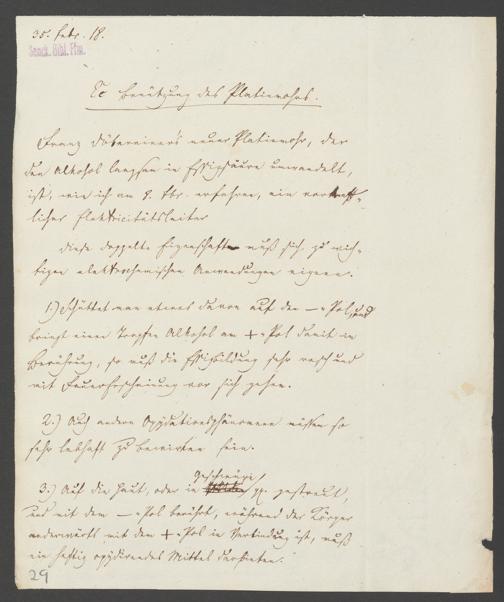 30. Febr. 18.
Senck. Bibl. Ffm.
Benützung des Platinmohrs.
Franz Döbereiner's neuer Platinmohr, der
den Alkohol langsam in Essigsäure umwandelt,
ist, wie ich am 8. Fbr. erfahren, ein vortreff-
licher Elektricitätsleiter
Diese doppelte Eigenschaft muß sich zu wich-
tigen elektrochemischen Anwendungen eignen.
1.) Schüttet man etwas davon auf den — Pol, und
bringt einen Tropfen Alkohol am + Pol damit in
Berührung, so muß die Essigbildung sehr rasch und
mit Feuererscheinung vor sich gehen.
2.) Auch andere Oxydationsphänomene müssen so
sehr lebhaft zu bewirken sein.
3.) Auf die Haut, oder in Geschwüre pp. gestreut,
und mit dem — Pol berührt, während der Körper
anderwärts mit dem + Pol in Verbindung ist, muß
ein heftig oxydirendes Mittel darbieten.
29